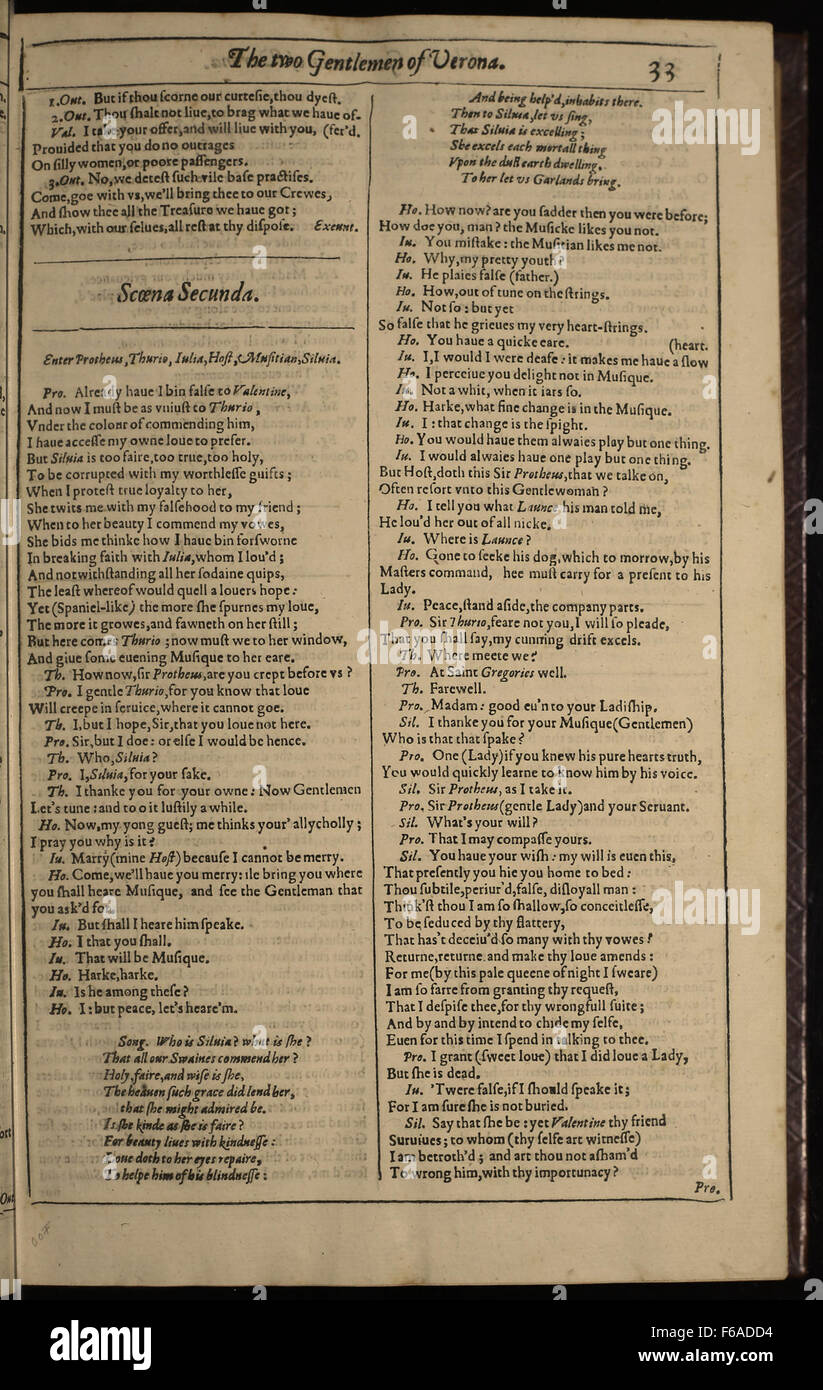 The two Gentlemen of Verona.
33
1.Out. But if thou ſcorne our curteſie,thou dyeſt.
2.Out. Thou ſhalt not liue,to brag what we haue of-
Val. I take your offer,and will liue with you, (fer'd.
Prouided that you do no outrages
On ſilly women,or poore paſſengers.
3.Out. No,we deteſt ſuch vile baſe practiſes.
Come,goe with vs,we'll bring thee to our Crewes,
And ſhow thee all the Treaſure we haue got;
Which,with our ſelues,all reſt at thy diſpoſe. Exeunt.
Scœna Secunda.
Enter Protheus,Thurio, Iulia,Hoſt,&Muſitian,Siluia.
Pro. Already haue I bin falſe to Valentine,
And now I muſt be as vniuſt to Thurio ,
Vnder the colour of commending him,
I haue acceſſe my owne loue to prefer.
But Siluia is too faire,too true,too holy,
To be corrupted with my worthleſſe guifts;
When I proteſt true loyalty to her,
She twits me with my falſehood to my friend;
When to her beauty I commend my vowes,
She bids me thinke how I haue bin forſworne
In breaking faith with Iulia,whom I lou'd;
And notwithſtanding all her ſodaine quips,
The leaſt whereof would quell a louers hope:
Yet (Spaniel-like) the more ſhe ſpurnes my loue,
The more it growes,and fawneth on her ſtill;
But here comes Thurio ;now muſt we to her window,
And giue ſome euening Muſique to her eare.
Th. How now,ſir Protheus,are you crept before vs ?
Pro. I gentle Thurio,for you know that loue
Will creepe in ſeruice,where it cannot goe.
Th. I,but I hope,Sir,that you loue not here.
Pro. Sir,but I doe: or elſe I would be hence.
Th. Who,Siluia?
Pro. I,Siluia,for your ſake.
Th. I thanke you for your owne: Now Gentlemen
Let's tune:and too it luſtily a while.
Ho. Now,my yong gueſt; me thinks your' allycholly;
I pray you why is it?
Iu. Marry(mine Hoſt) becauſe I cannot be merry.
Ho. Come,we'll haue you merry:ile bring you where
you ſhall heare Muſique, and ſee the Gentleman that
you ask'd for.
Iu. But ſhall I heare him ſpeake.
Ho. I that you ſhall.
Iu. That will be Muſique.
Ho. Harke,harke.
Iu. Is he among theſe?
Ho. I: but peace, let's heare'm.
Song. Who is Siluia? what is ſhe?
That all our Swaines commend her?
Holy,faire,and wiſe is ſhe,
The heauen ſuch grace did lend her,
that ſhe might admired be.
Is ſhe kinde as ſhe is faire?
For beauty liues with kindneſſe:
Loue doth to her eyes repaire,
To helpe him of his blindneſſe:
And being help'd,inhabits there.
Then to Siluia,let vs ſing,
That Siluia is excelling;
She excels each mortall thing
Vpon the dull earth dwelling.
To her let vs Garlands bring.
Ho. How now?are you ſadder then you were before;
How doe you, man? the Muſicke likes you not.
Iu. You miſtake: the Muſitian likes me not.
Ho. Why,my pretty youth?
Iu. He plaies falſe (father.)
Ho. How,out of tune on the ſtrings.
Iu. Not ſo: but yet
So falſe that he grieues my very heart-ſtrings.
Ho. You haue a quicke eare. (heart.
Iu. I,I would I were deafe: it makes me haue a ſlow
Ho. I perceiue you delight not in Muſique.
Iu. Not a whit, when it iars ſo.
Ho. Harke,what fine change is in the Muſique.
Iu. I: that change is the ſpight.
Ho. You would haue them alwaies play but one thing.
Iu. I would alwaies haue one play but one thing.
But Hoſt,doth this Sir Protheus,that we talke on,
Often reſort vnto this Gentlewoman?
Ho. I tell you what Launce his man told me,
He lou'd her out of all nicke.
Iu. Where is Launce?
Ho. Gone to ſeeke his dog,which to morrow,by his
Maſters command, hee muſt carry for a preſent to his
Lady.
Iu. Peace,ſtand aſide,the company parts.
Pro. Sir Thurio,feare not you,I will ſo pleade,
That you ſhall ſay,my cunning drift excels.
Th. Where meete we?
Pro. At Saint Gregories well.
Th. Farewell.
Pro. Madam: good eu'n to your Ladiſhip.
Sil. I thanke you for your Muſique(Gentlemen)
Who is that that ſpake?
Pro. One (Lady)if you knew his pure hearts truth,
You would quickly learne to know him by his voice.
Sil. Sir Protheus, as I take it.
Pro. Sir Protheus(gentle Lady)and your Seruant.
Sil. What's your will?
Pro. That I may compaſſe yours.
Sil. You haue your wiſh: my will is euen this,
That preſently you hie you home to bed:
Thou ſubtile,periur'd,falſe, diſloyall man:
Think'ſt thou I am ſo ſhallow,ſo conceitleſſe,
To be ſeduced by thy flattery,
That has't deceiu'd ſo many with thy vowes?
Returne,returne and make thy loue amends:
For me(by this pale queene of night I ſweare)
I am ſo farre from granting thy requeſt,
That I deſpiſe thee,for thy wrongfull ſuite;
And by and by intend to chide my ſelfe,
Euen for this time I ſpend in talking to thee.
Pro. I grant (ſweet loue) that I did loue a Lady,
But ſhe is dead.
Iu. 'Twere falſe,if I ſhould ſpeake it;
For I am ſure ſhe is not buried.
Sil. Say that ſhe be: yet Valentine thy friend
Suruiues; to whom (thy ſelfe art witneſſe)
I am betroth'd; and art thou not aſham'd
To wrong him,with thy importunacy?
Pro.
alamy
Image ID: F6ADD4
www.alamy.com